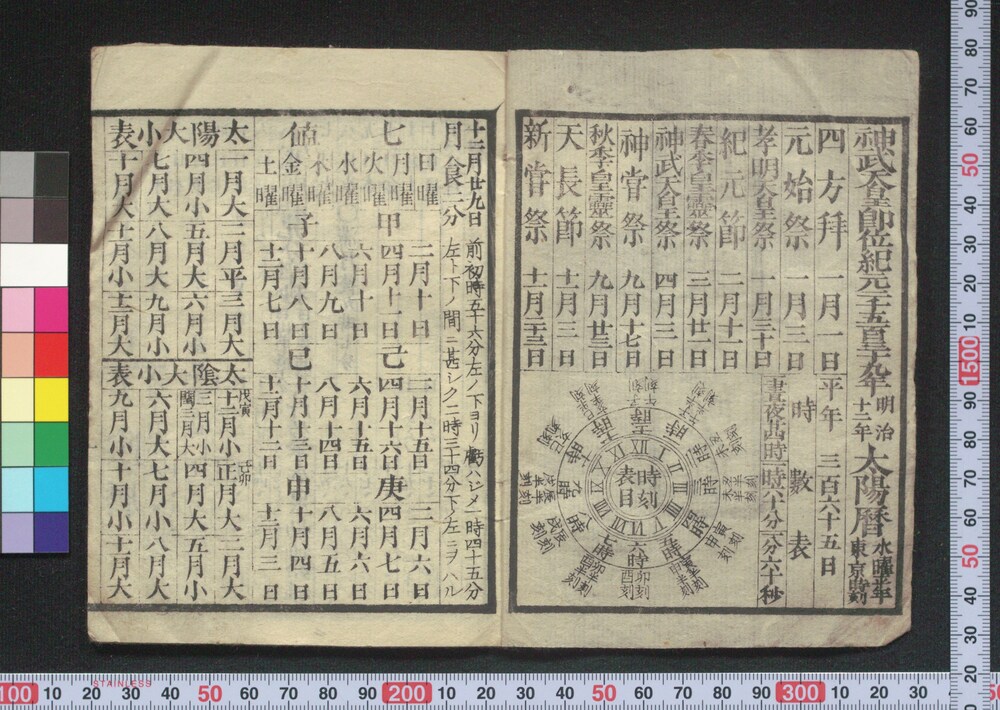 神武天皇即位紀元二千五百三十九年 明治十二年 太陽暦 水曜平年 東京時刻
四方拜 一月一日
元始祭 一月三日
孝明天皇祭 一月三十日
紀元節 二月十一日
春季皇靈祭 三月廿一日
神武天皇祭 四月三日
神嘗祭 九月十七日
秋季皇靈祭 九月廿三日
天長節 十一月三日
新嘗祭 十一月廿三日
平年 三百六十五日
時數表
晝夜廿四時 一時六十分 一分六十秒
時刻表目
十二月廿九日 前初時五十六分左ノ下ヨリ虧ハジメ一時四十五分
月食二分 左ト下ノ間ニ甚シク二時三十四分下ノ左ニヲハル
七値
日曜
月曜
火曜
水曜
木曜
金曜
土曜
甲子
二月十日
四月十一日
六月十日
八月九日
十月八日
十二月七日
己巳
二月十五日
四月十六日
六月十五日
八月十四日
十月十三日
十二月十二日
庚申
二月六日
四月七日
六月六日
八月五日
十月四日
十二月三日
太陽大小表
一月大 二月平 三月大
四月小 五月大 六月小
七月大 八月大 九月小
十月大 十一月小 十二月大
太陰大小表
戊寅十二月小 己卯正月大 二月大
三月小 閏三月大 四月大 五月小
六月大 七月小 八月大
九月小 十月小 十一月大
STAINLESS